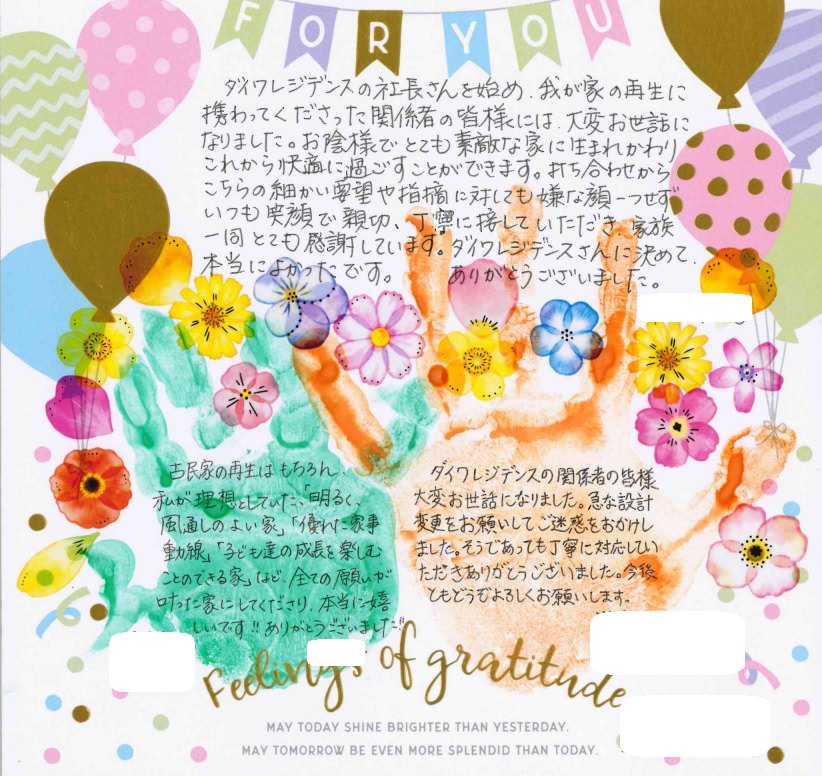 FOR YOU
ダイワレジデンスの社長さんを始め、我が家の再生に
携わってくださった関係者の皆様には、大変お世話に
なりました。お陰様でとても素敵な家に生まれかわり
これから快適に過ごすことができます。打ち合わせから
こちらの細かい要望や指摘に対しても嫌な顔一つせず
いつも笑顔で親切、丁寧に接していただき、家族
一同とても感謝しています。ダイワレジデンスさんに決めて、
本当によかったです。 ありがとうございました。
古民家の再生はもちろん、
私が理想としていた、「明るく、
風通しのよい家」「優れた家事
動線」「子ども達の成長を楽しむ
ことのできる家」など、全ての願いが
叶った家にしてくださり、本当に嬉
しいです!!ありがとうございました!!
ダイワレジデンスの関係者の皆様
大変お世話になりました。急な設計
変更をお願いしてご迷惑をおかけし
ました。そうであっても丁寧に対応してい
ただきありがとうございました。今後
ともどうぞよろしくお願いします。
Feelings of gratitude
MAY TODAY SHINE BRIGHTER THAN YESTERDAY.
MAY TOMORROW BE EVEN MORE SPLENDID THAN TODAY.